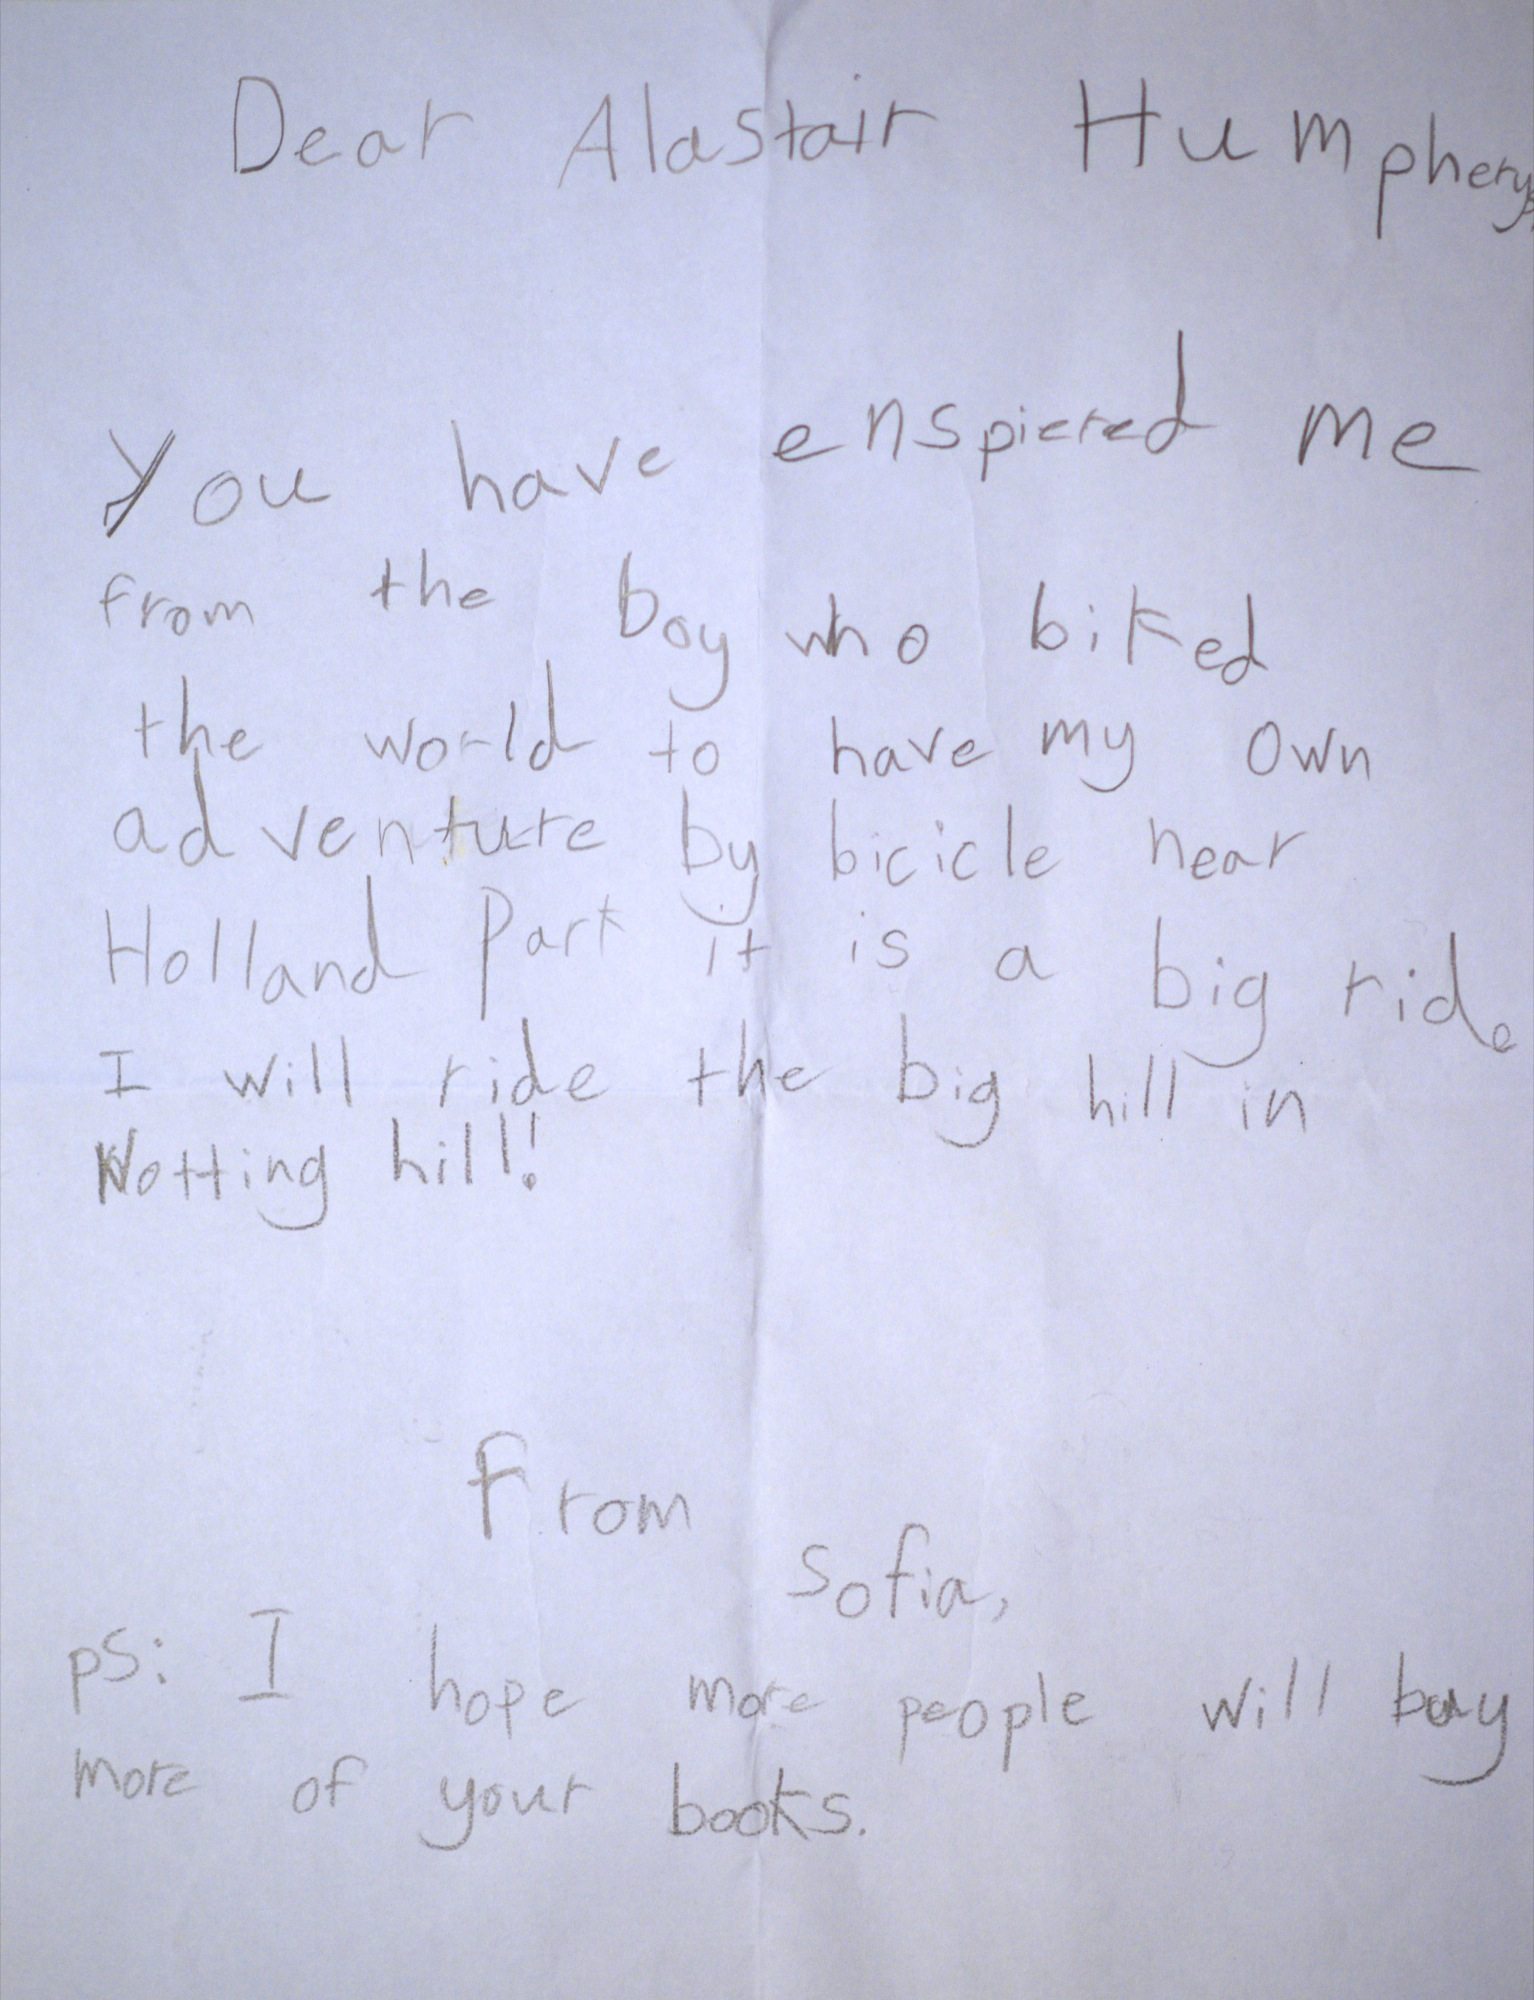 Dear Alastair Humpherys,
You have enspiered me
from the boy who biked
the world to have my own
adventure by bicicle near
Holland Park it is a big ride
I will ride the big hill in
Notting hill!
From
Sofia,
ps: I hope more people will buy
more of your books.